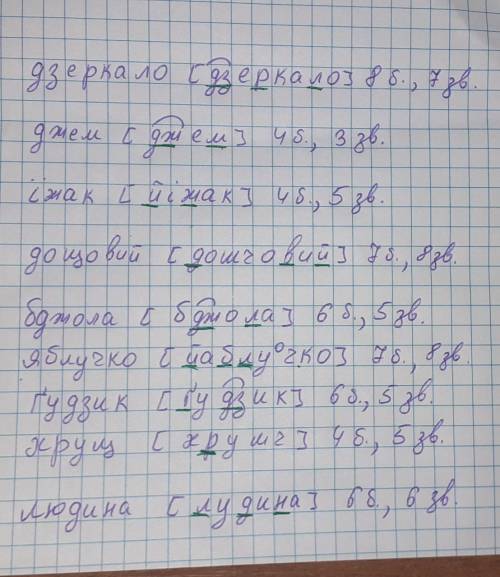 дзеркало [дзеркало] 8 б., 7 зв.
джем [джем] 4 б., 3 зв.
їжак [йіжак] 4 б., 5 зв.
дощовий [дошчовий] 7 б., 8 зв.
бджола [бджола] 6 б., 5 зв.
яблучко [йаблуᵒчко] 7 б., 8 зв.
ґудзик [ґудзик] 6 б., 5 зв.
хрущ [хрушч] 4 б., 5 зв.
людина [лудина] 6 б., 6 зв.